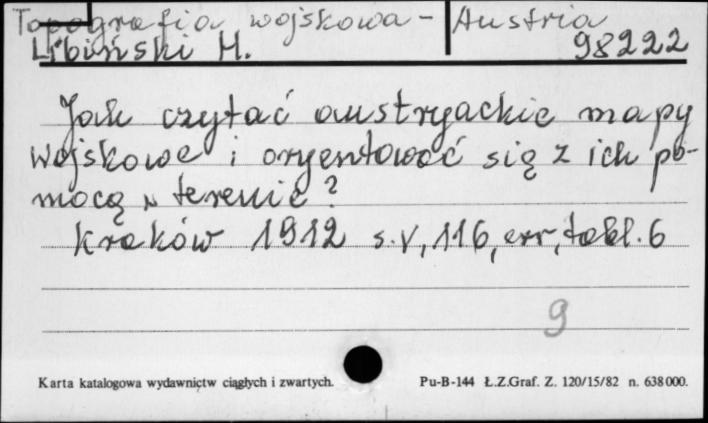 Topografia wojskowa - Austria
Libiński H. 98222
Jak czytać austryackie mapy
wojskowe i oryentować się z ich po-
mocą w terenie?
Kraków 1912 s. V, 116, err, tabl. 6
9
Karta katalogowa wydawnictw ciągłych i zwartych. Pu-B-144 Ł.Z.Graf. Z. 120/15/82 n. 638000.